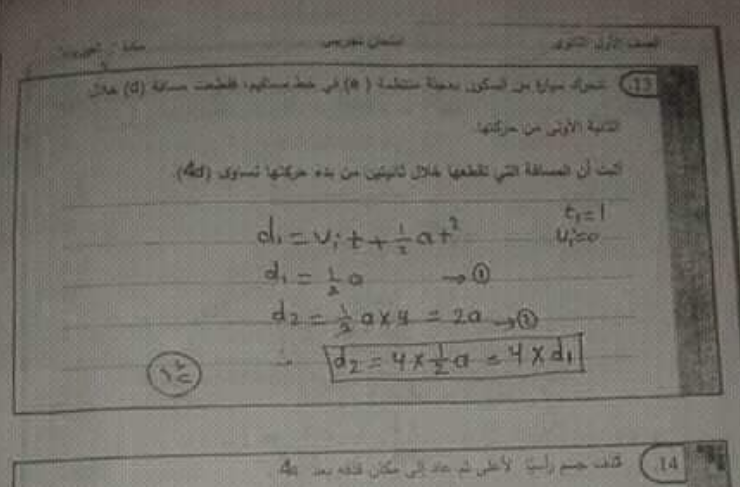 الصف الأول الثانوى
امتحان تجريبى
13 تتحرك سيارة من السكون بعجلة منتظمة (a) في خط مستقيم، فقطعت مسافة (d) خلال
الثانية الأولى من حركتها.
أثبت أن المسافة التي تقطعها خلال ثانيتين من بدء حركتها تساوى (4d).
t₁=1
vᵢ=0
d₁ = vᵢ t + ½ at²
d₁ = ½ a → ①
d₂ = ½ a x 4 = 2a → ②
∴ d₂ = 4 x ½ a = 4 x d₁
14. قذف جسم رأسيًا لأعلى ثم عاد إلى مكان قذفه بعد 4s